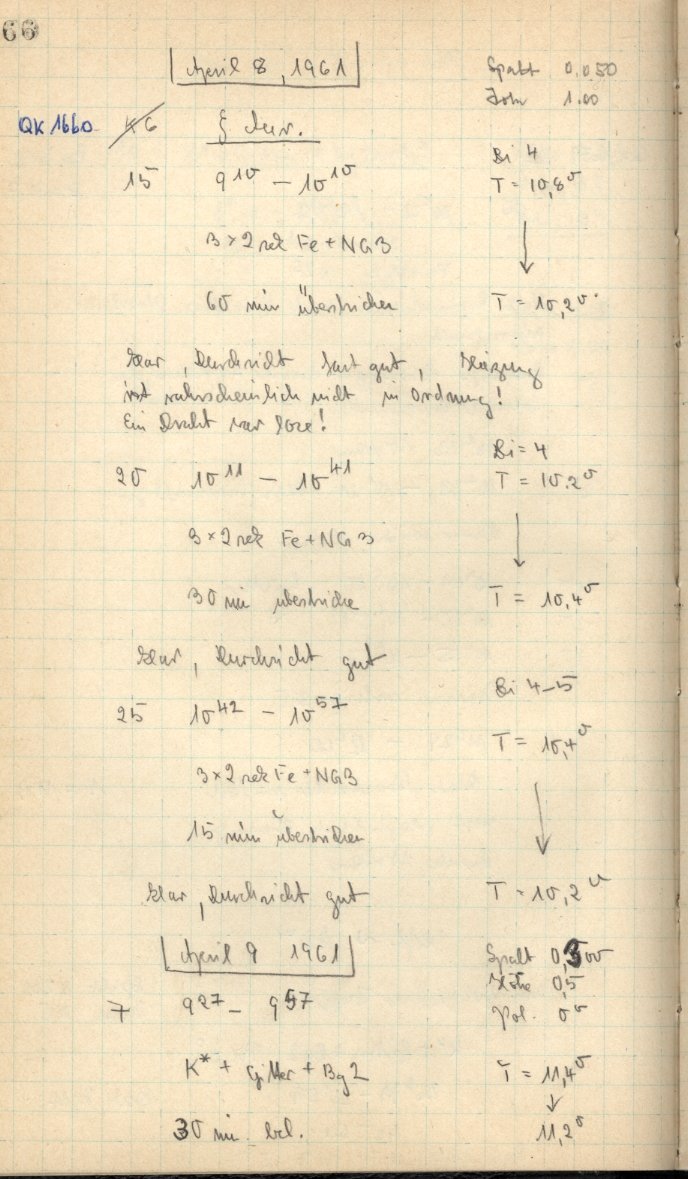 66
April 8, 1961
Spalt 0,050
1.00
QK 1660
ξ Aur.
Bi 4
15 9¹⁰ – 10¹⁰
T = 10,8°
3×2 sek Fe + NG3
60 min überstrichen
T = 10,2°
klar, Durchsicht fast gut,
ist wahrscheinlich nicht in Ordnung!
Ein Draht war lose!
Bi = 4
20 10¹¹ – 10⁴¹
T = 10.2°
3×2 sek Fe + NG3
30 min überstriche
T = 10,4°
klar, Durchsicht gut
Bi 4–5
25 10⁴² – 10⁵⁷
T = 10,4°
3×2 sek Fe + NG3
15 min überstrichen
klar, Durchsicht gut
T = 10,2°
April 9 1961
Spalt 0,300
Höhe 0,5
7 9²⁷ – 9⁵⁷
Pol. 0°
K* + Gitter + Bg2
T = 11,4°
30 min. bel.
11,2°